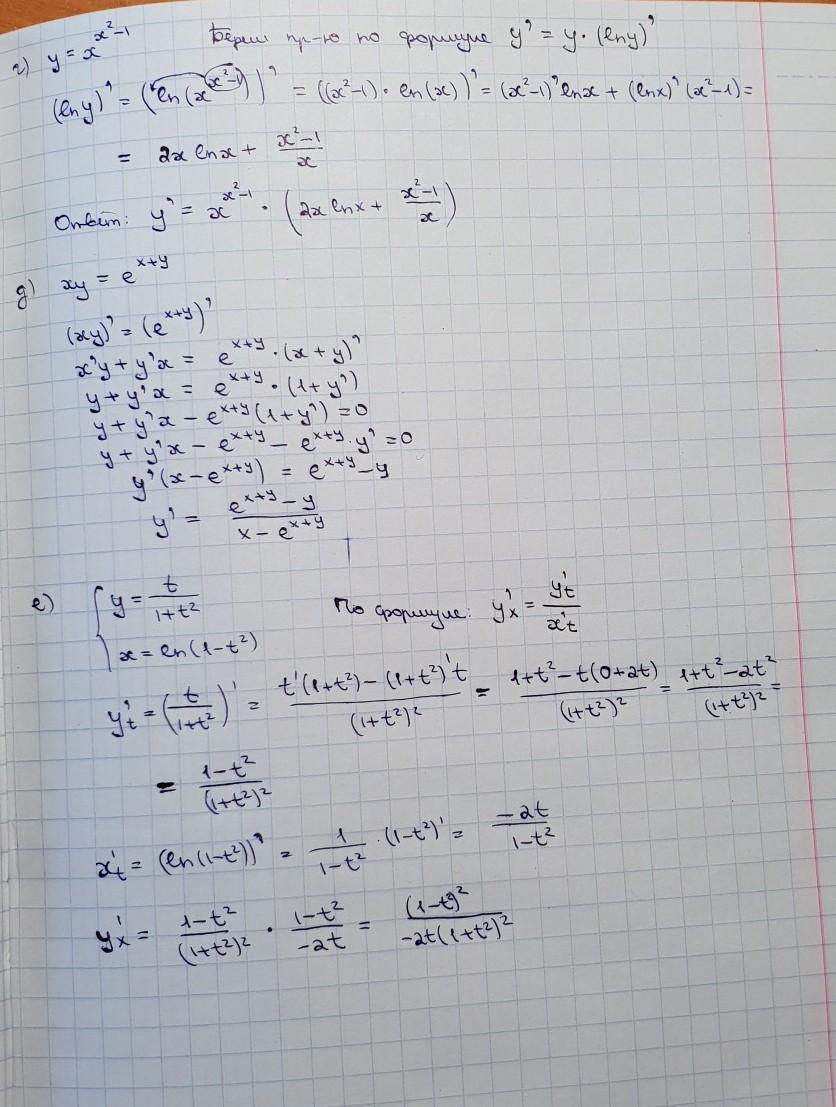 г) y = x^{x²-1} Берём пр-ю по формуле y' = y · (ln y)'
(ln y)' = (ln(x^{x²-1}))' = ((x²-1) · ln(x))' = (x²-1)' ln x + (ln x)' (x²-1) =
= 2x ln x + \frac{x²-1}{x}
Ответ: y' = x^{x²-1} · (2x ln x + \frac{x²-1}{x})
д) xy = e^{x+y}
(xy)' = (e^{x+y})'
x'y + y'x = e^{x+y} · (x+y)'
y + y'x = e^{x+y} · (1+y')
y + y'x - e^{x+y}(1+y') = 0
y + y'x - e^{x+y} - e^{x+y} · y' = 0
y'(x - e^{x+y}) = e^{x+y} - y
y' = \frac{e^{x+y} - y}{x - e^{x+y}}
е) { y = \frac{t}{1+t²} По формуле: y'_x = \frac{y'_t}{x'_t}
x = ln(1-t²)
y'_t = (\frac{t}{1+t²})' = \frac{t'(1+t²) - (1+t²)'t}{(1+t²)²} = \frac{1+t² - t(0+2t)}{(1+t²)²} = \frac{1+t²-2t²}{(1+t²)²} =
= \frac{1-t²}{(1+t²)²}
x'_t = (ln(1-t²))' = \frac{1}{1-t²} · (1-t²)' = \frac{-2t}{1-t²}
y'_x = \frac{1-t²}{(1+t²)²} · \frac{1-t²}{-2t} = \frac{(1-t²)²}{-2t(1+t²)²}